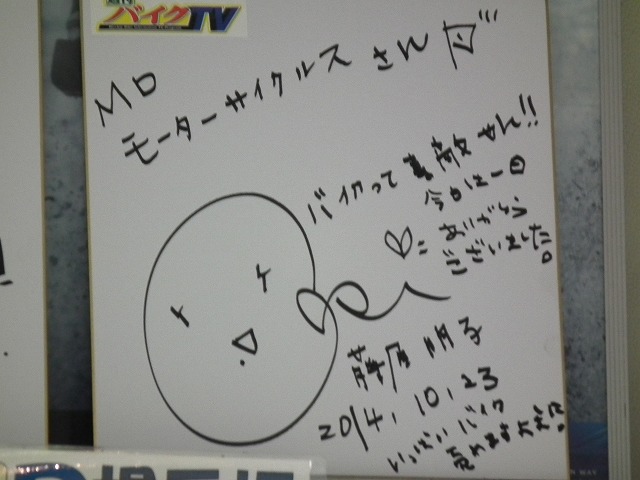 週刊
バイクTV
MD
モーターサイクルス さん 江
バイクって 素敵 やん!!
今日は一日
ありがとう
ございました。
藤原 明子
2014.10.23
いっぱい バイク
売れますように!